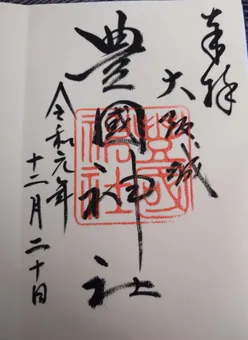 奉拝
大阪城
豊國神社
令和元年
十二月二十日
豊國
神社